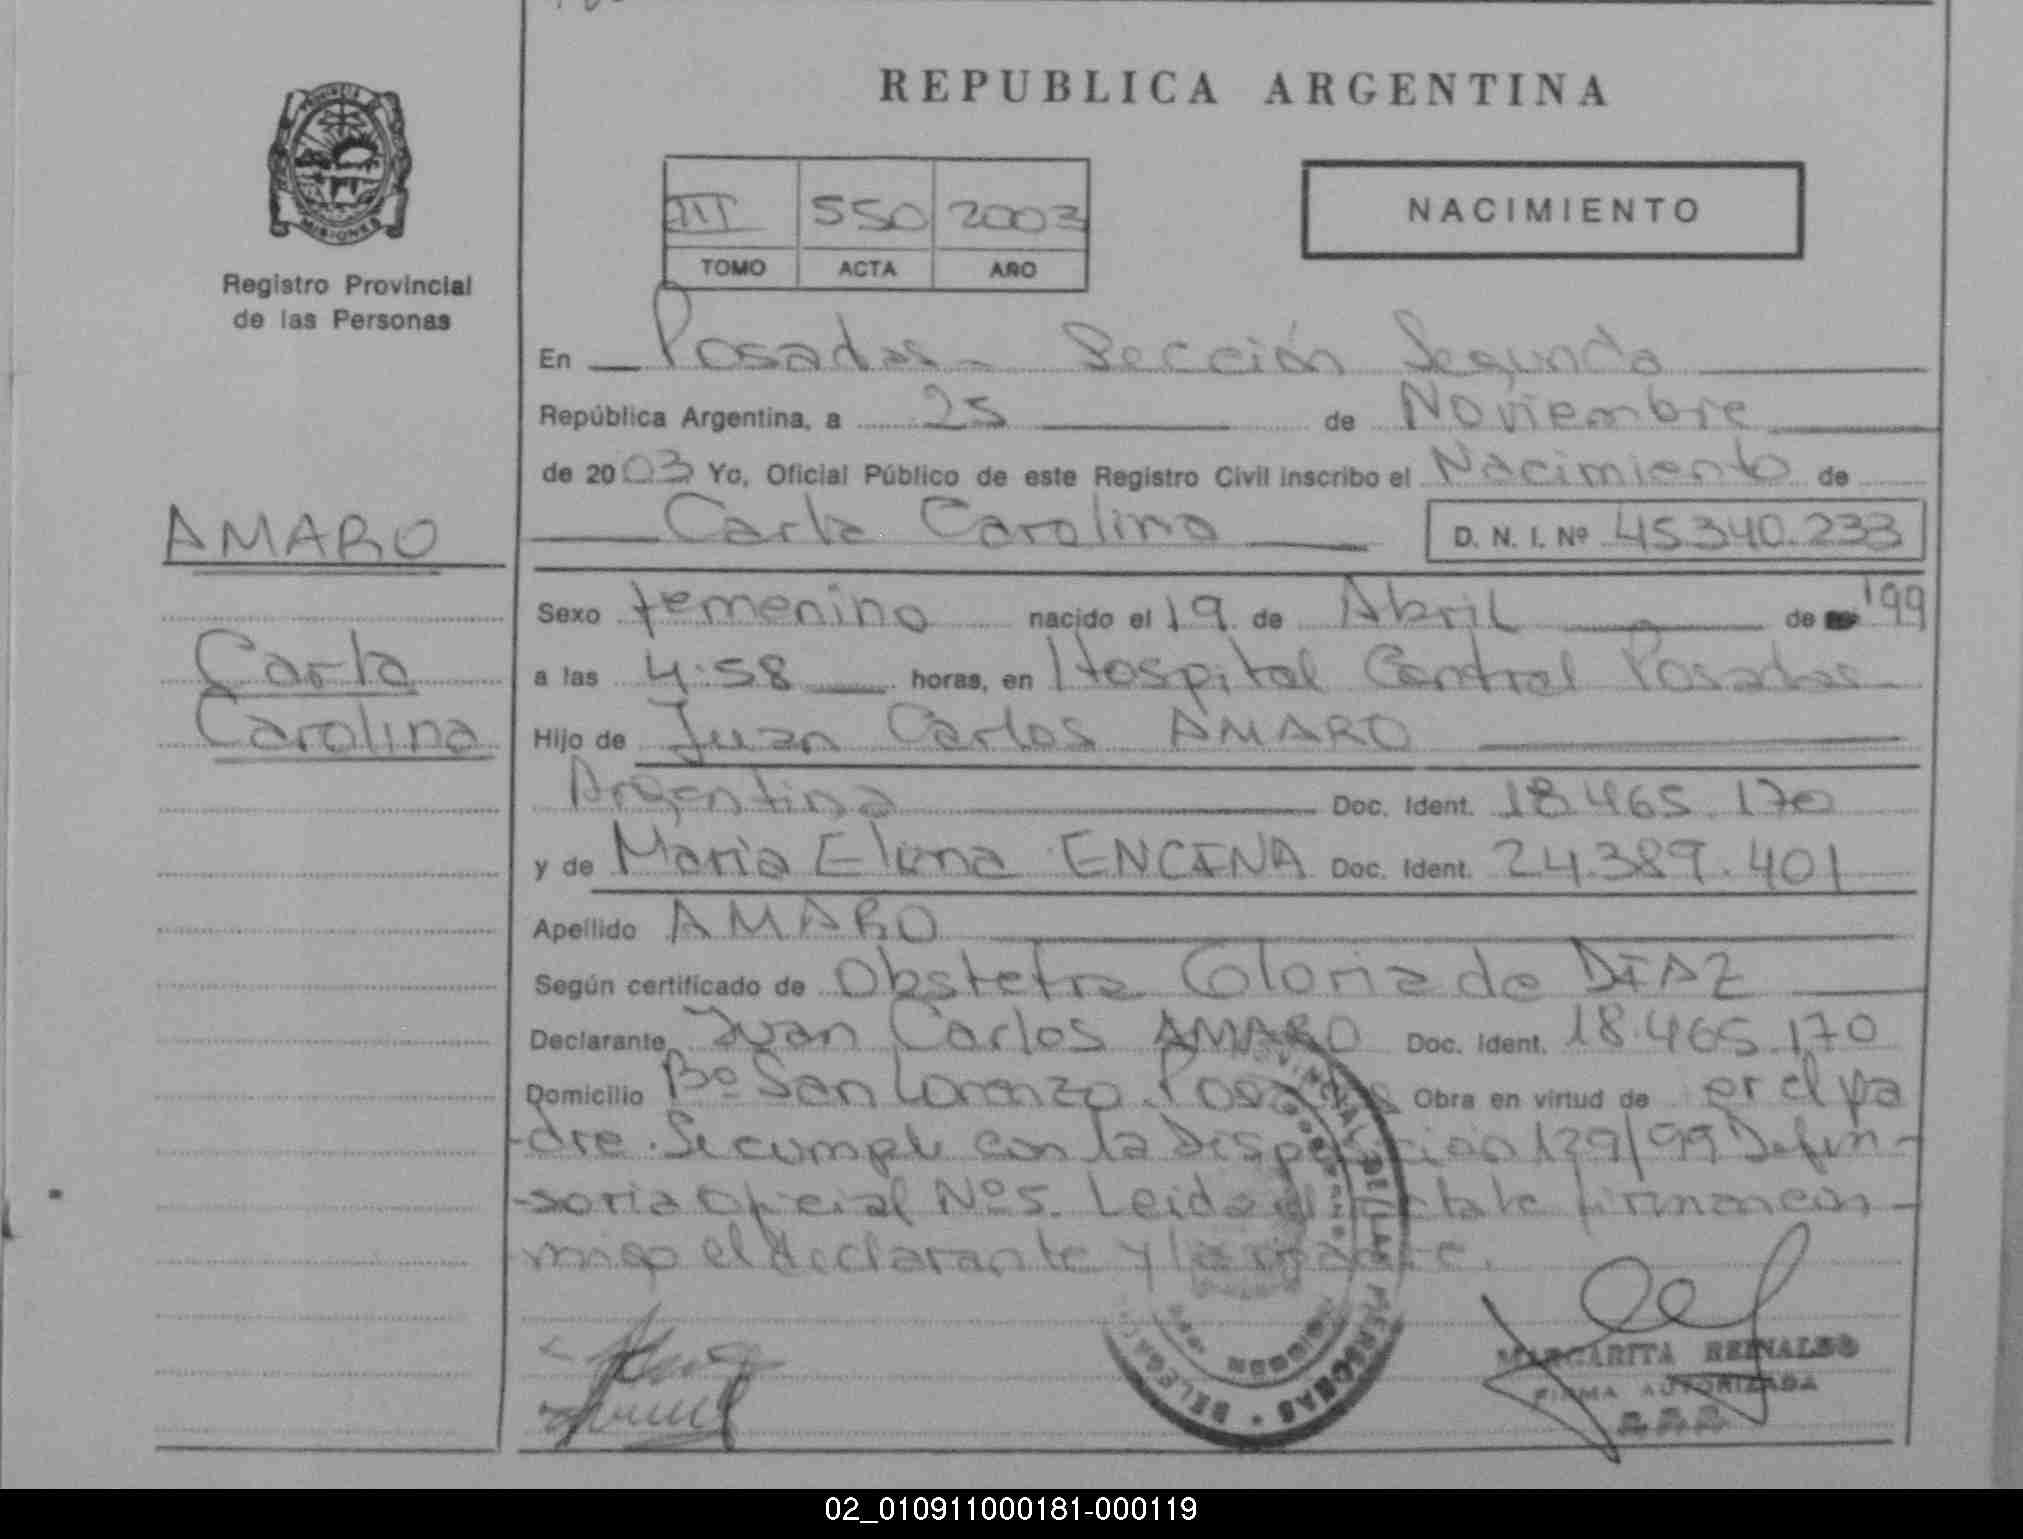 REPUBLICA ARGENTINA
PROVINCIA DE
MISIONES
Registro Provincial
de las Personas
III 550 2003
TOMO ACTA AÑO
NACIMIENTO
En Posadas - Sección Segunda
República Argentina, a 25 de Noviembre
de 2003 Yo, Oficial Público de este Registro Civil inscribo el Nacimiento de
Carla Carolina D. N. I. Nº 45.340.233
AMARO
Carla
Carolina
Sexo femenino nacido el 19 de Abril de '99
a las 4:58 horas, en Hospital Central Posadas
Hijo de Juan Carlos AMARO
Argentina Doc. Ident. 18.465.170
y de Maria Elena ENCINA Doc. Ident. 24.389.401
Apellido AMARO
Según certificado de Obstetra Gloria de DIAZ
Declarante Juan Carlos AMARO Doc. Ident. 18.465.170
Domicilio Bº San Lorenzo Posadas Obra en virtud de er el pa
dre. Se cumple con la Disposición 129/99 Defen-
-soria Oficial Nº5. Leida el acta la firman con-
migo el declarante y la madre.
MARGARITA REINALDO
FIRMA AUTORIZADA
02_010911000181-000119